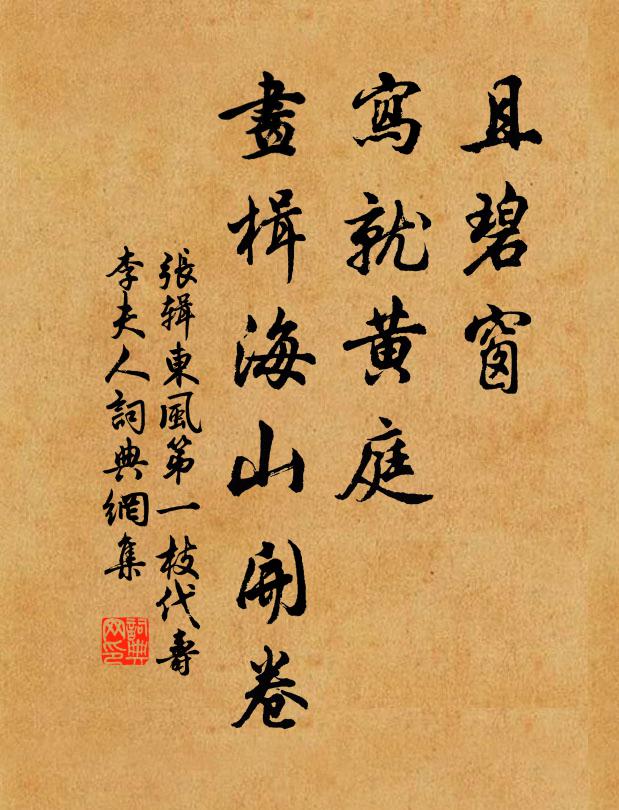 且碧窗
寫就黃庭
畫楫海山開卷
張輯東風第一枝代壽
李夫人詞典網集
詞典網印